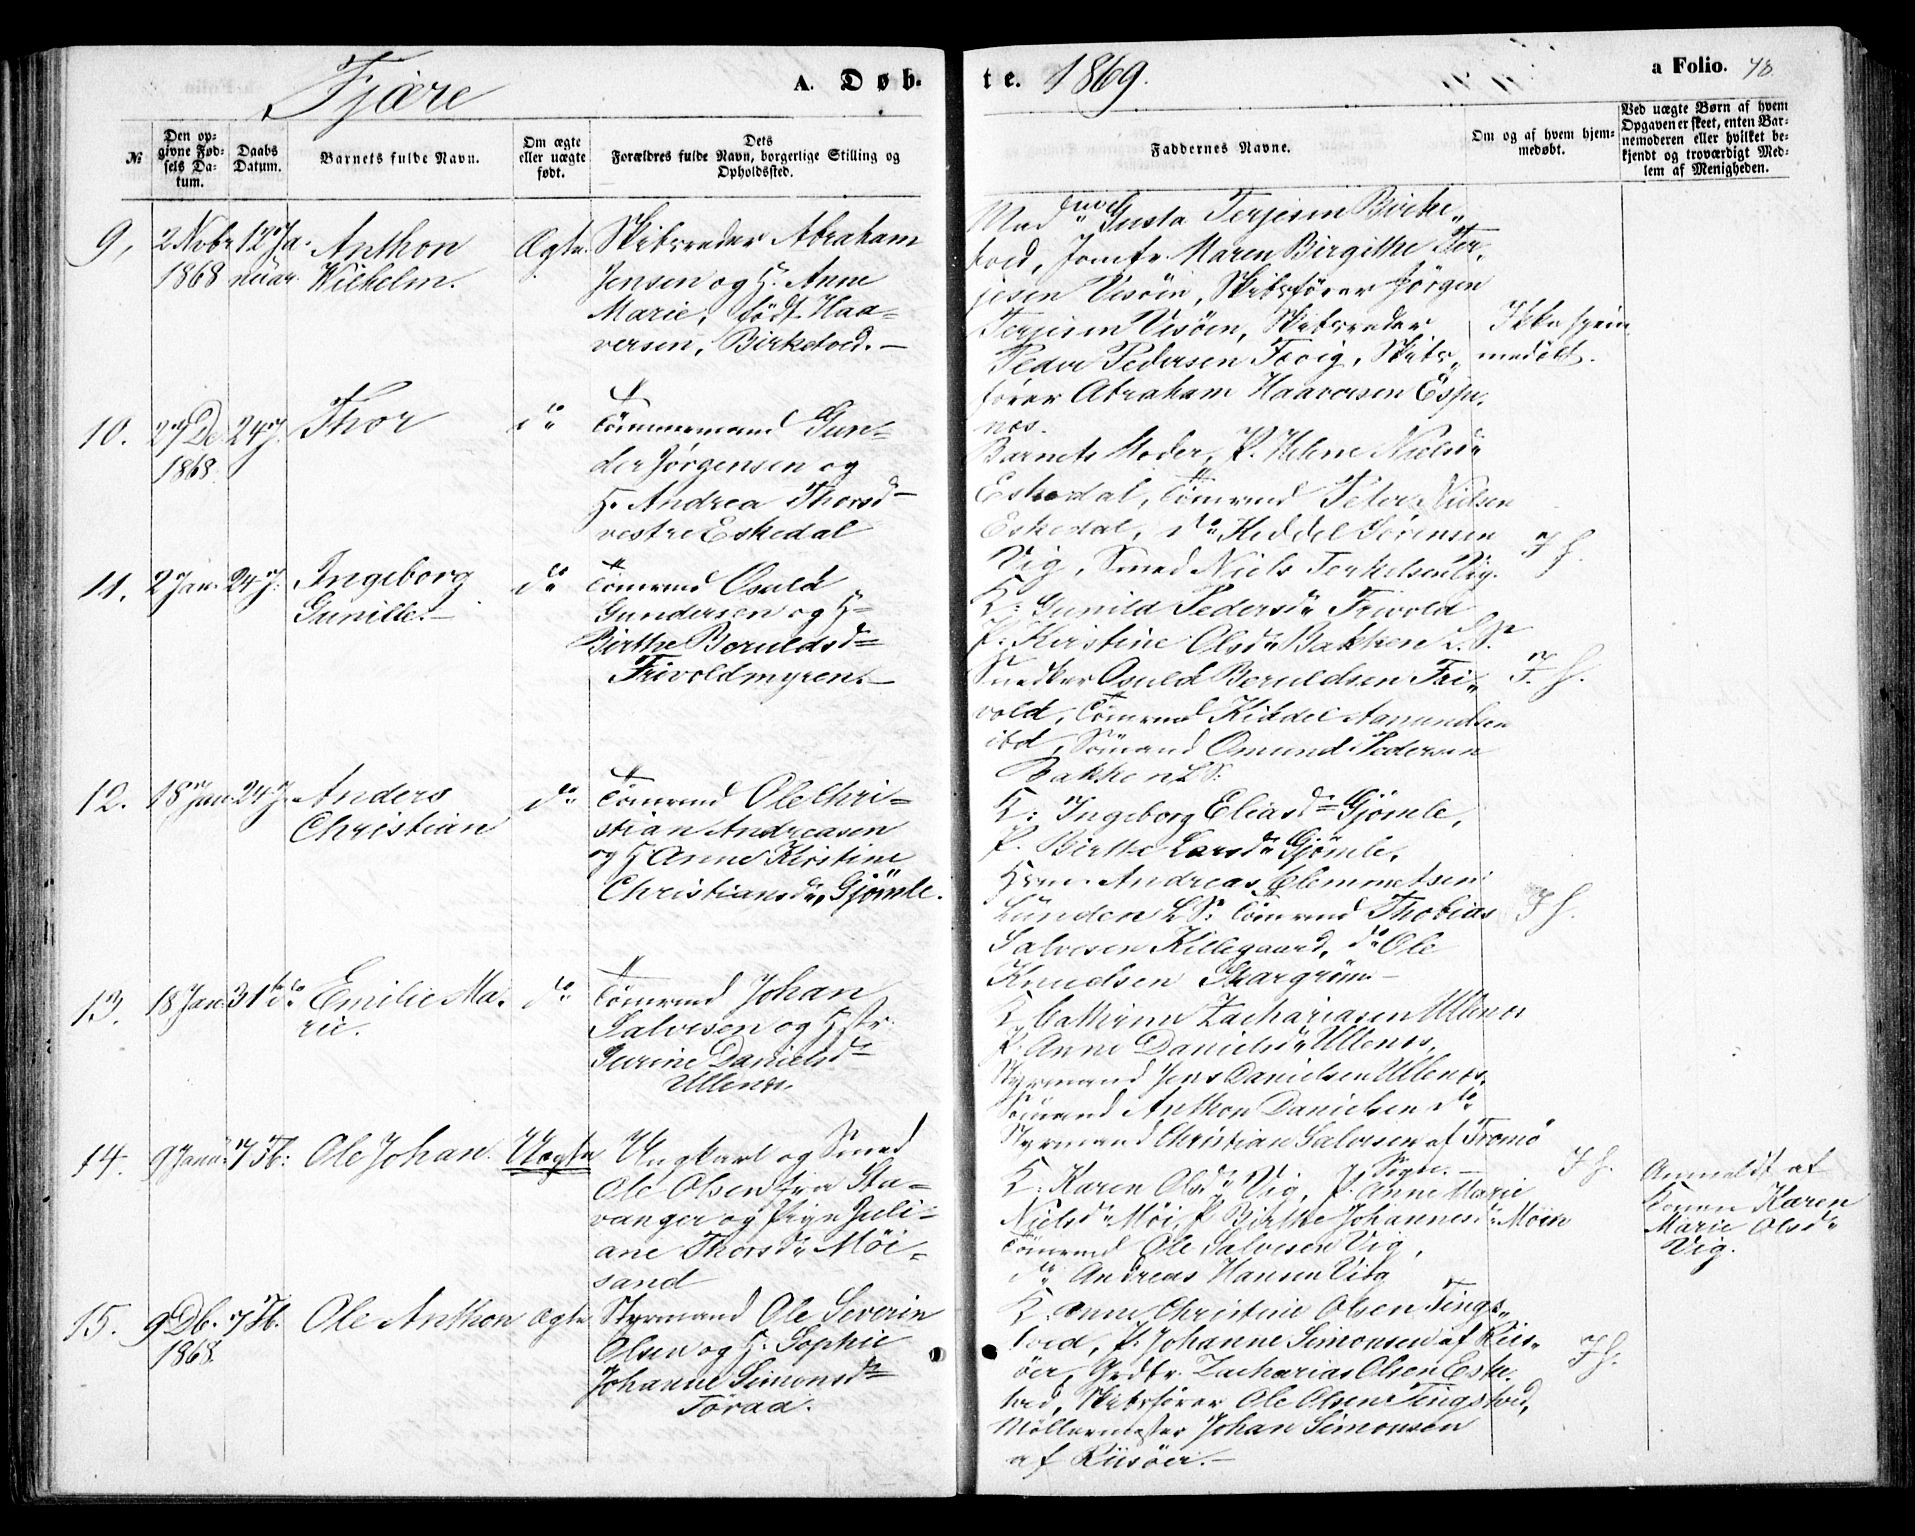 Fjære
A. Døb-
te. 1869.
a Folio. 48
№
Den op-
givne Fød-
sels Da-
tum.
Daabs
Datum.
Barnets fulde Navn.
Om ægte
eller uægte
født.
Dets
Forældres fulde Navn, borgerlige Stilling og
Opholdssted.
Faddernes Navne.
Om og af hvem hjem-
medøbt.
Ved uægte Børn af hvem
Opgaven er skeet, enten Bar-
nemoderen eller hvilket be-
kjendt og troværdigt Med-
lem af Menigheden.
9,
2 Novbr
1868
12 Ja-
nuar.
Anthon
Wilhelm.
Ægte
Skibsreder Abraham
Jensen og H. Anne
Marie, født Haa-
versen, Birketved.-
Gusta Terjesen Birke-
tved, Jomfr. Maren Birgithe Ter-
jesen Vesøen, Skibsfører Jørgen
Terjesen Vesøen, Skibsreder
Peder Pedersen Skibs-
fører Abraham Haaversen Espe-
nes.
Ikke hjem
medøbt.
10.
29 De
1868.
24 J.
Thor
do
Tømmermand Gun-
der Jørgensen og
H. Andrea Thorsd
vestre Eskedal
Barnets Moder, P. Helene Nielsd
Eskedal, Tømrmd Peter Nielsen
Eskedal, do Keddel Sørensen
Vig, Smed Niels Terkelsen Vig.
I H.
11.
2 Jan.
24 J.
Ingeborg
Gunille.-
do
Tømrmd Osuld
Gundersen og H-
Birthe Beruldsd
Frivoldmyren.-
K: Gunild Pedersd Frivold
P. Kirstine Olsd Bakken L. S.
Snedker Osuld Beruldsen Fri-
vold, Tømrmd Kiddel Aamundsen
ibd, Sømand Omund Pedersen
Bakken LS:
I. H.
12.
18 Jan
24 J.
Anders
Christian
do
Tømrmd Ole Chri-
stian Andreasen
og H Anne Kirstine
Christiansd Gjømle.
K: Ingeborg Eliasd Gjømle,
P. Birthe Larsd Gjømle,
Andreas Clemmetsen
Lunden LS: Tømrmd Thobias
Salvesen Killegaard, do Ole
Knudsen Skargrøm-
I H.
13.
18 Jan
31te do
Emilie Ma-
rie.
do
Tømrmd Johan
Salvesen og Hstr.
Gurine Danielsd
Ullenes.
K Cathrine Zachariasen Ullenes
P. Anne Danielsd Ullenes,
Styrmand Jens Danielsen Ullenes,
Sømand Anthon Danielsen do
Styrmand Christian Salvesen af Tromø
Sogn.-
14.
9 Janu
7 Fb:
Ole Johan.
Uægte
Ungkarl og Smed
Ole Olsen fra Sta-
vanger og Pige Juli-
ane Thorsd Möi-
sand
K: Karen Olsd Vig, P. Anne Marie
Nielsd Møi, P. Birthe Johannesd Møen
Tømrmd Ole Salvesen Vig,
do Andreas Hansen Vig
I H.
Anmeldt af
Konen Karen
Marie Olsd
Vig.
15.
9 Db.
1868.
7 Fb.
Ole Anthon
Ægte
Styrmand Ole Severin
Olsen og H. Sophie
Johanne Simonsd
Töraa.
K. Anne Christine Olsen Tings-
tved, P. Johanne Simonsen af Riis-
öer, Grdbr. Zacharias Olsen Eske-
tved, Skibsfører Ole Olsen Tingstved,
Møllermester Johan Simonsen
af Riisöer.-
I H.